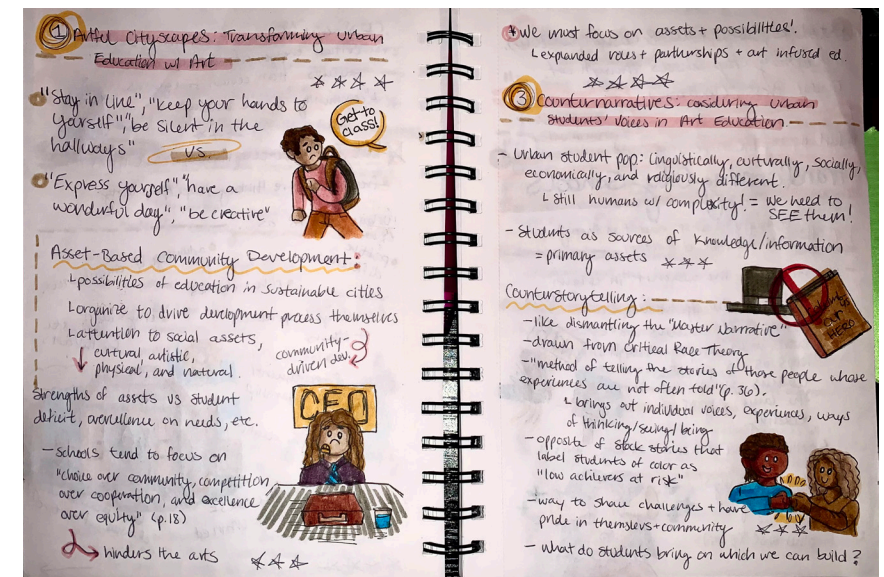 1 Artful Cityscapes: Transforming Urban
Education w/ Art
"Stay in line", "keep your hands to
yourself", "be silent in the
hallways"
vs.
Get to
class!
"Express yourself", "have a
wonderful day", "be creative"
Asset-Based Community Development:
possibilities of education in sustainable cities
organize to drive development process themselves
attention to social assets,
cultural, artistic,
physical, and natural.
community-
driven dev.
Strengths of assets vs student
deficit, overreliance on needs, etc.
CEO
- schools tend to focus on
"choice over community, competition
over cooperation, and excellence
over equity" (p.18)
hinders the arts
* We must focus on assets + possibilities!
expanded roles + partnerships + art infused ed.
3 Counternarratives: considering Urban
Students' Voices in Art Education
- Urban student pop: linguistically, culturally, socially,
economically, and religiously different.
still humans w/ complexity! = we need to
SEE them!
- Students as sources of knowledge/information
= primary assets
Counterstorytelling:
- like dismantling the "Master Narrative"
- drawn from Critical Race Theory
- "method of telling the stories of those people whose
experiences are not often told" (p. 36).
brings out individual voices, experiences, ways
of thinking/seeing/being
- opposite of stock stories that
label students of color as
"low achievers at risk"
- way to share challenges + have
pride in themselves + community
- what do students bring on which we can build?